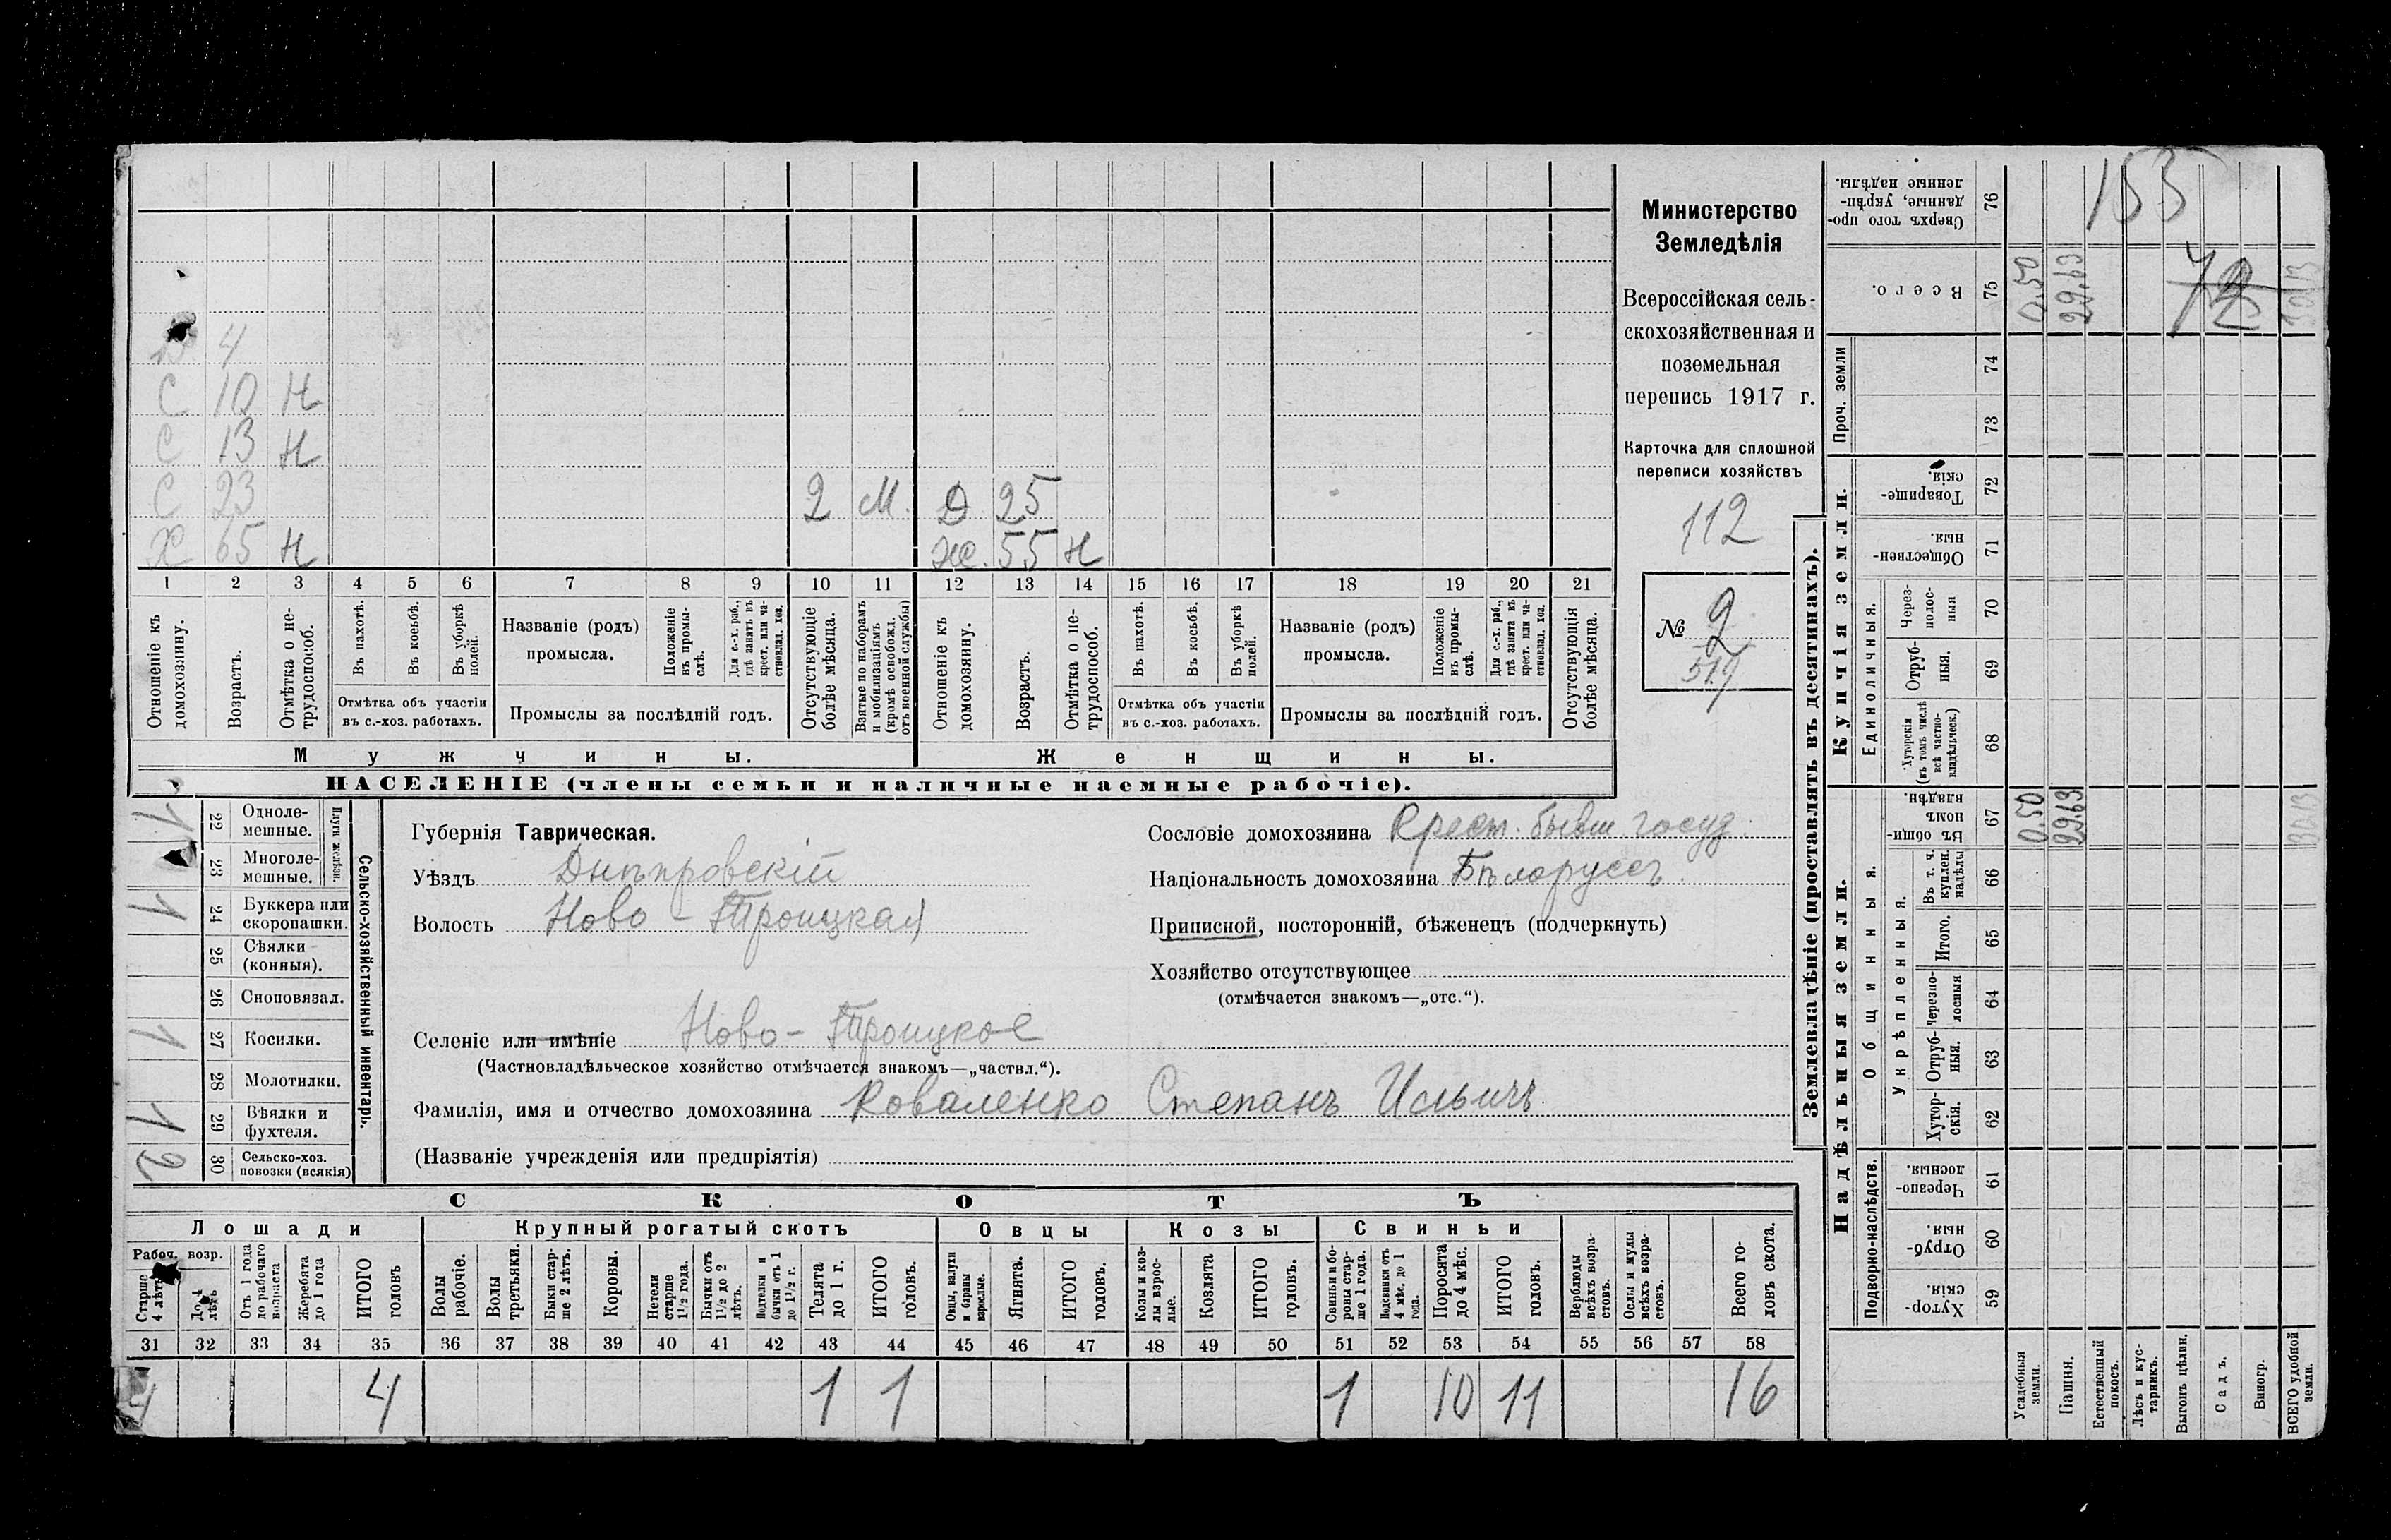 4
С 10 Н
С 13 Н
С 23 2 М. Д 25
Х 65 Н Ж. 55 Н
1 2 3 4 5 6 7 8 9 10 11 12 13 14 15 16 17 18 19 20 21
Отношеніе къ домохозяину.
Возрастъ.
Отмѣтка о не-
трудоспособ.
Въ пахотѣ.
Въ косьбѣ.
Въ уборкѣ
полей.
Отмѣтка объ участіи
въ с.-хоз. работахъ.
Названіе (родъ)
промысла.
Положеніе
въ промы-
слѣ.
Для с.-х. раб.,
гдѣ занятъ въ
крест. или ча-
стновлад. хоз.
Промыслы за послѣдній годъ.
Отсутствующіе
болѣе мѣсяца.
Взятые по наборамъ
и мобилизаціямъ
(кромѣ освобожд.
отъ военной службы)
Отношеніе къ
домохозяину.
Возрастъ.
Отмѣтка о не-
трудоспособ.
Въ пахотѣ.
Въ косьбѣ.
Въ уборкѣ
полей.
Отмѣтка объ участіи
въ с.-хоз. работахъ.
Названіе (родъ)
промысла.
Положеніе
въ промы-
слѣ.
Для с.-х. раб.,
гдѣ занята въ
крест. или ча-
стновлад. хоз.
Промыслы за послѣдній годъ.
Отсутствующія
болѣе мѣсяца.
Мужчины. Женщины.
НАСЕЛЕНІЕ (члены семьи и наличные наемные рабочіе).
Министерство
Земледѣлія
Всероссійская сель-
скохозяйственная и
поземельная
перепись 1917 г.
Карточка для сплошной
переписи хозяйствъ
112
№ 2
519
Сельско-хозяйственный инвентарь.
Плуги желѣзн.
1 22 Одноле-
мешные.
23 Многоле-
мешные.
1 24 Буккера или
скоропашки.
25 Сѣялки
(конныя).
26 Сноповязал.
1 27 Косилки.
28 Молотилки.
1 29 Вѣялки и
фухтеля.
2 30 Сельско-хоз.
повозки (всякія)
Губернія Таврическая.
Уѣздъ Днѣпровскій
Волость Ново-Троицкая
Селеніе или имѣніе Ново-Троицкое
(Частновладѣльческое хозяйство отмѣчается знакомъ—„частвл.“).
Фамилія, имя и отчество домохозяина Коваленко Степанъ Ильичъ
(Названіе учрежденія или предпріятія)
Сословіе домохозяина Крест. бывш. госуд.
Національность домохозяина Бѣлоруссъ
Приписной, посторонній, бѣженецъ (подчеркнуть)
Хозяйство отсутствующее
(отмѣчается знакомъ—„отс.“).
СКОТЪ
Лошади Крупный рогатый скотъ Овцы Козы Свиньи
Рабоч. возр.
Старше
4 лѣтъ
До 4
лѣтъ
Отъ 1 года
до рабочаго
возраста
Жеребята
до 1 года
ИТОГО
головъ
Волы
рабочіе.
Волы
третьяки.
Быки стар-
ше 2 лѣтъ.
Коровы.
Нетели
старше
1½ года.
Бычки отъ
1½ до 2
лѣтъ.
Подтелки и
бычки отъ 1
до 1½ г.
Телята
до 1 г.
ИТОГО
головъ.
Овцы, валухи
и бараны
взрослые.
Ягнята.
ИТОГО
головъ.
Козы и коз-
лы взрос-
лые.
Козлята
ИТОГО
головъ.
Свиньи и бо-
ровы стар-
ше 1 года.
Подсвинки отъ
4 мѣс. до 1
года.
Поросята
до 4 мѣс.
ИТОГО
головъ.
Верблюды
всѣхъ возра-
стовъ.
Ослы и мулы
всѣхъ возра-
стовъ.
Всего го-
ловъ скота.
31 32 33 34 35 36 37 38 39 40 41 42 43 44 45 46 47 48 49 50 51 52 53 54 55 56 57 58
4 4 1 1 1 10 11 16
Землевладѣніе (проставлять въ десятинахъ).
153
72
Сверхъ того про-
данные, укрѣп-
ленные надѣлы.
76
Всего.
75 0.50 29.63 30.13
Проч. земли
74
73
Купчія земли.
Товарище-
скія.
72
Обществен-
ныя.
71
Единоличныя.
Через-
полос-
ныя
70
Отруб-
ныя.
69
Хуторскія
(въ томъ числѣ
всѣ частно-
владѣльческ.)
68
Надѣльныя земли.
Общинныя.
Въ общин-
номъ
владѣн.
67 0.50 29.63 30.13
Укрѣпленныя.
Въ т. ч.
куплен.
надѣлы
66
Итого.
65
Черезпо-
лосныя
64
Отруб-
ныя.
63
Хутор-
скія.
62
Подворно-наслѣдств.
Черезпо-
лосныя.
61
Отруб-
ныя.
60
Хутор-
скія.
59
Усадебныя
земли.
Пашня.
Естественный
покосъ.
Лѣсъ и кус-
тарникъ.
Выгонъ цѣлин.
Садъ.
Виногр.
ВСЕГО удобной
земли.